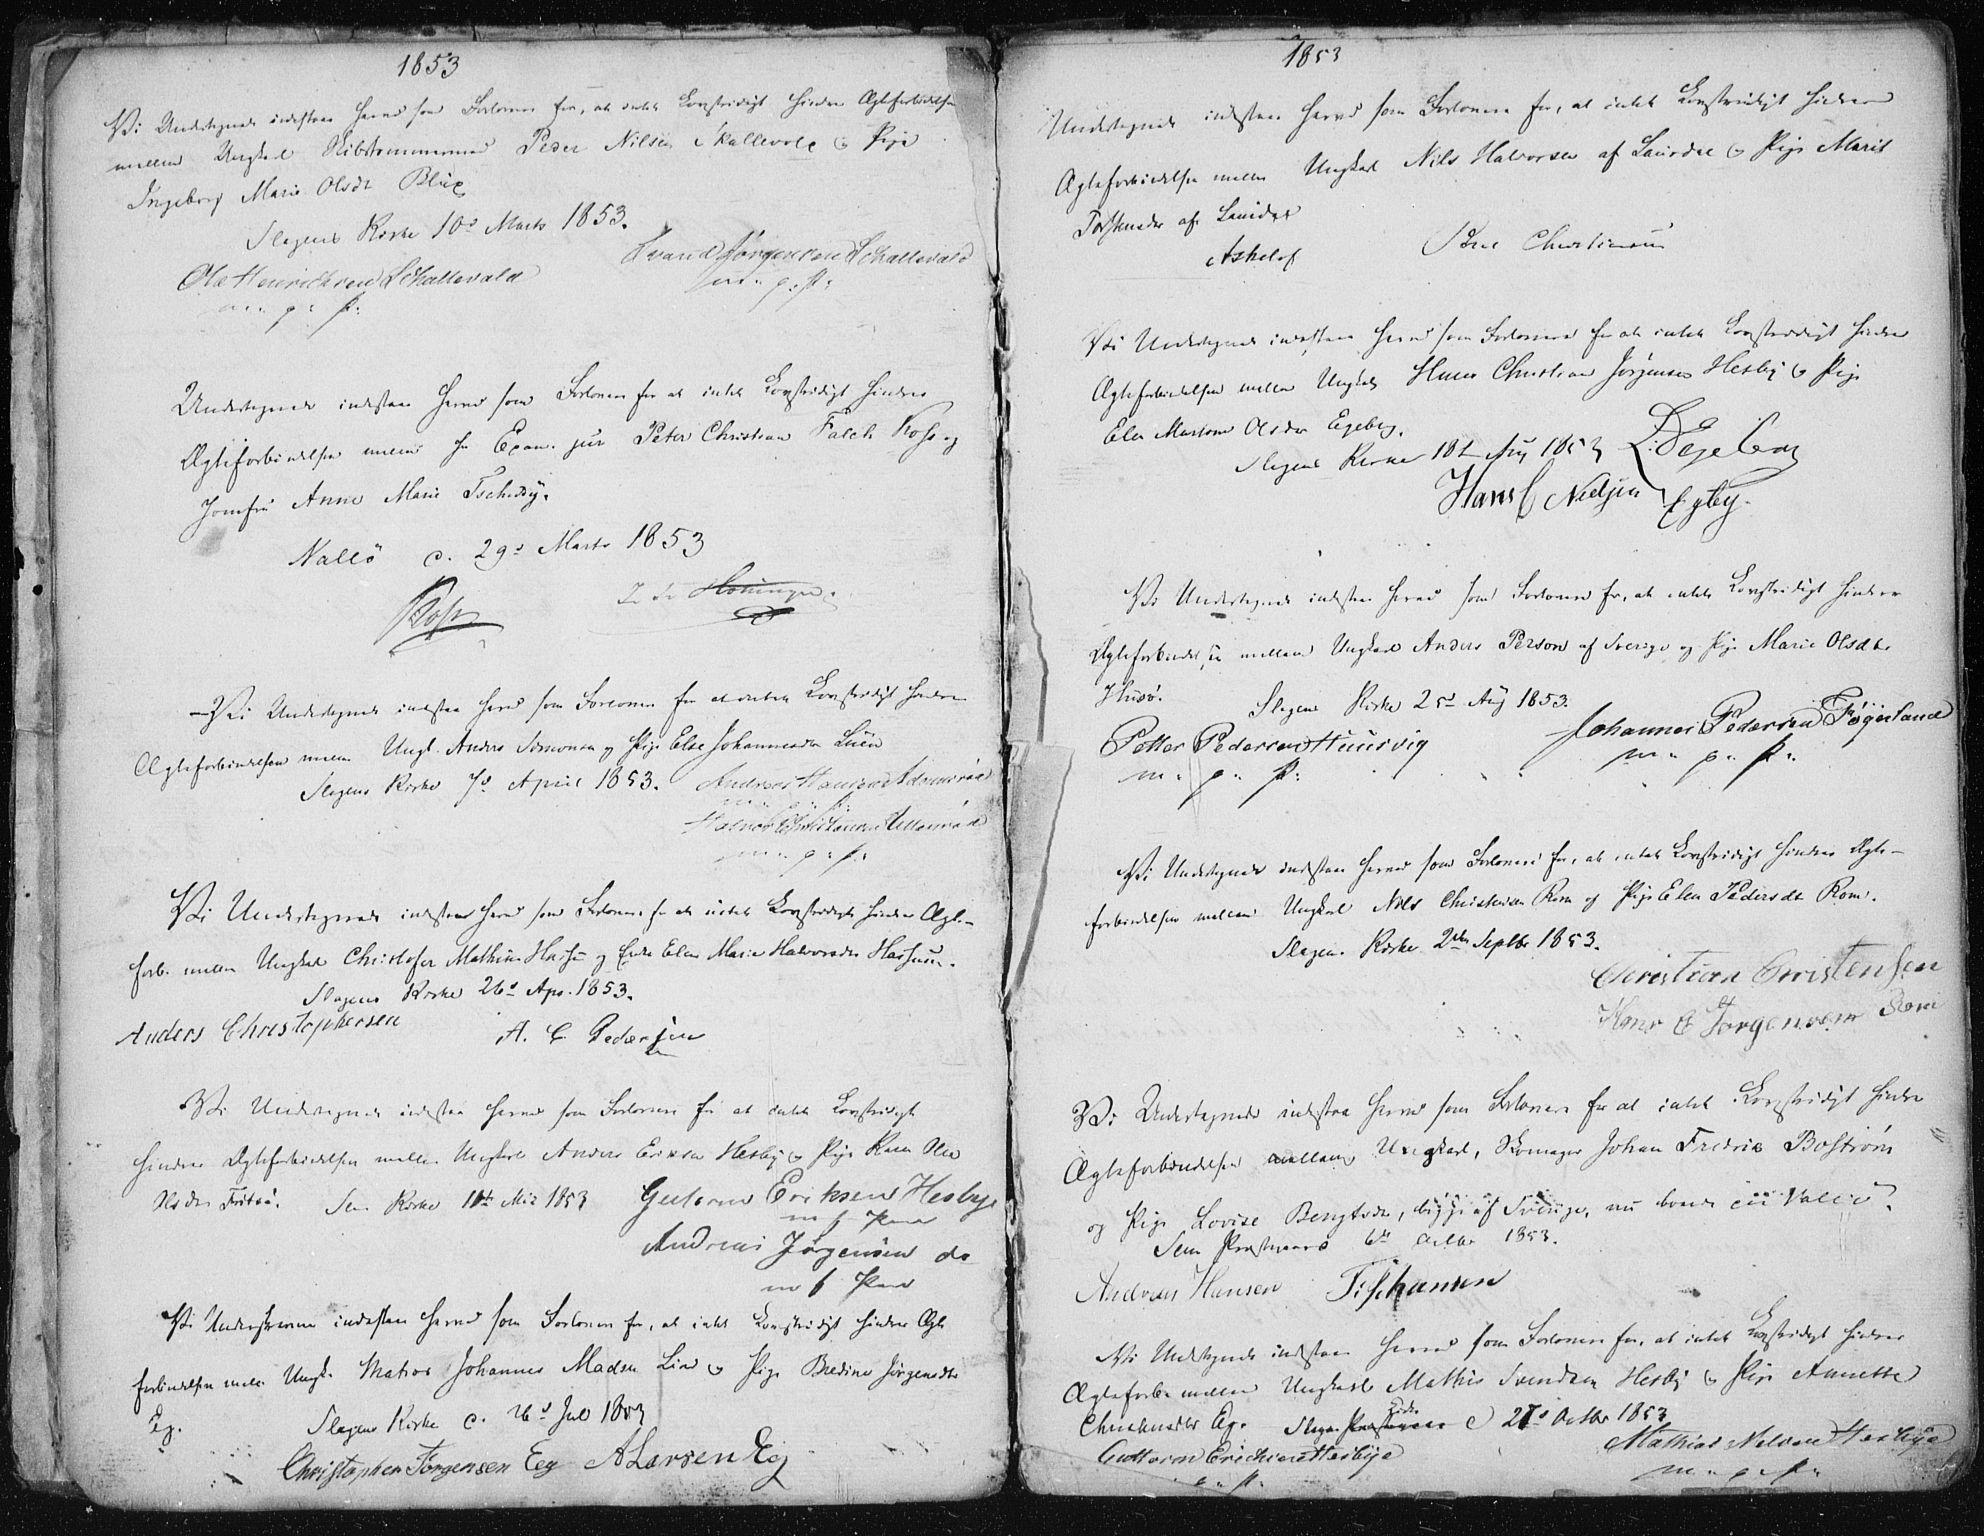 1853
Vi Undertegnede indestaae herved som Forlovere for, at intet Lovstridigt hindrer Ægteforbindelsen
mellem Ungkarl Skibstømmermand Peder Nilsen Skallevold og Pige
Ingeborg Marie Olsdr
Slagens Kirke 10de Marts 1853.
Ole Henrichsen Schallevold
Jørgensen Schallevold
m. p. p.
m. p. p.
Undertegnede indestaae herved som Forlovere for at intet Lovstridigt hindrer
Ægteforbindelsen mellem Hr Exam. jur Peter Christian Falch Ross og
Jomfru Anne Marie
Vallö d. 29de Marts 1853
Ross
Vi Undertegnede indestaa herved som Forlovere for at intet Lovstridigt hindrer
Ægteforbindelsen mellem Ungk. Anders Simonsen og Pige Else Johannesdr
Slagens Kirke 7de April 1853.
Andreas Hansen
m. p. p.
Halvor Christiansen
m. p. p.
Vi Undertegnede indestaae herved som Forlovere for at intet Lovstridigt hindrer Ægte-
forb. mellem Ungkarl Christofer Mathias og Enke Elen Marie Halvorsdr
Slagens Kirke 26de Apr. 1853.
Anders Christophersen
A. C. Pedersen
Vi Undertegnede indestaa herved som Forlovere for at intet Lovstridigt
hindrer Ægteforbindelsen mellem Ungkarl Anders Eriksen Hesby og Pige Karen
Sem Kirke 11te Mai 1853
Guttorm Eriksen Hesbye
m f Pen
Andreas Jørgensen do
m f Pen
Vi Underskrevne indestaae herved som Forlovere for, at intet Lovstridigt hindrer Ægte
forbindelsen mellem Ungk. Matros Johannes Madsen Lind og Pige Bredine Jørgensdtr
Eg.
Slagens Kirke d. 26de Juli 1853
Christopher Jørgensen Eeg
A Larsen Eg
1853
Undertegnede indestaae herved som Forlovere for, at intet Lovstridigt hindrer
Ægteforbindelsen mellem Ungkarl Nils Halvorsen af Laurdal og Pige Marit
Torstensdr af Laurdal
Askelof
Christiansen
Vi Undertegnede indestaae herved som Forlovere for at intet Lovstridigt hindrer
Ægteforbindelsen mellem Ungkarl Hans Christian Jørgensen Hesby og Pige
Elen Olsdr Egeberg.
Slagens Kirke 18de Aug 1853
Hans C Nielsen
Vi Undertegnede indestaae herved som Forlovere for, at intet Lovstridigt hindrer
Ægteforbindelsen mellem Ungkarl Anders Person af Sverige og Pige Marie Olsdtr
Husö.
Slagens Kirke 25de Aug 1853.
Petter Pedersen Huusvig
m. p. p.
Johannes Pedersen
m. p. p.
Vi Undertegnede indestaae herved som Forlovere for, at intet Lovstridigt hindrer Ægte-
forbindelsen mellem Ungkarl Nils Christensen Rom og Pige Elen Pedersdr Rom.
Slagens Kirke 2den Septbr 1853.
Christian Cristensen
Hans C Jorgensen Rom
Vi Undertegnede indestaa herved som Forlovere for at intet Lovstridigt hindrer
Ægteforbindelsen mellem Ungkarl, Skomager Johan Fredrik Boström
og Pige Lovise Bengtsdr, begge af Sverige, nu boende paa Vallö.
Sem Præstegaard 6te Octbr 1853.
Andreas Hansen
Vi Undertegnede indestaae herved som Forlovere for, at intet Lovstridigt hindrer
Ægteforb. mellem Ungkarl Mathis Svendsen Hesby og Pige Annette
Christensdtr Eg. Slagens Kirke d 27de Octbr 1853
Guttorm Erichsen Hesbye
p. p.
Mathias Nilsen Hesbye
m. p. p.